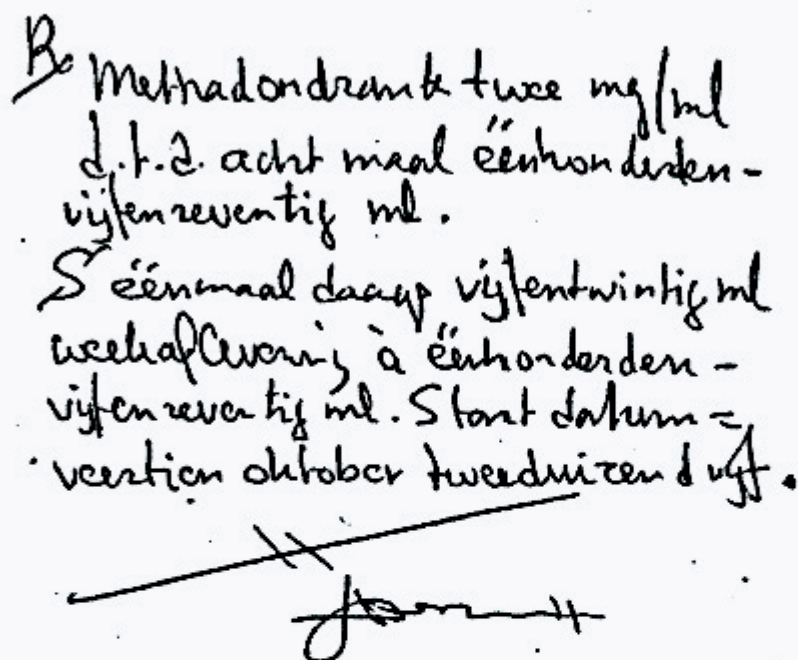 R/ Methadondrank twee mg/ml
d.t.d. acht maal éénhonderden-
vijfenzeventig ml.
S éénmaal daags vijfentwintig ml
weekaflevering à éénhonderden-
vijfenzeventig ml. Start datum =
veertien oktober tweeduizend vijf.